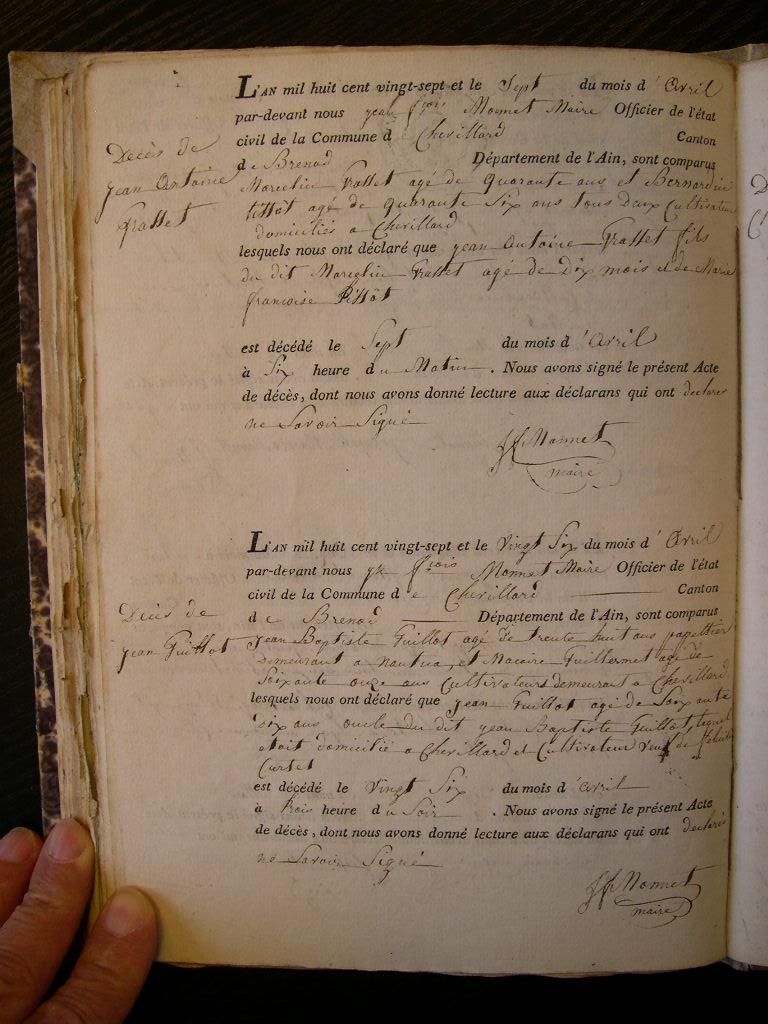 L'AN mil huit cent vingt-sept et le Sept du mois d'Avril
par-devant nous jean fçois Monnet Maire Officier de l'état
civil de la Commune de Chevillard Canton
de Brenod Département de l'Ain, sont comparus
Décès de
jean Antoine
frasset
Marcelin frasset agé de quarante ans et Bernardin
tittôt agé de quarante Six ans tous Deux Cultivateurs
domiciliés a Chevillard
lesquels nous ont déclaré que jean Antoine frasset fils
du dit Marcelin frasset agé de Dix mois et de Marie
françoise tittôt
est décédé le Sept du mois d'Avril
à Six heure du Matin. Nous avons signé le présent Acte
de décès, dont nous avons donné lecture aux déclarans qui ont declarer
ne Savoir Signé
jf Monnet
maire
L'AN mil huit cent vingt-sept et le Vingt Six du mois d'Avril
par-devant nous jn fçois Monnet Maire Officier de l'état
civil de la Commune de Chevillard Canton
de Brenod Département de l'Ain, sont comparus
Décès de
jean Guillot
jean Baptiste Guillot agé de trente huit ans papettier
demeurant a nantua, et Macaire Guillermet agé de
Soixante onze ans Cultivateurs demeurant a Chevillard
lesquels nous ont déclaré que jean Guillot agé de Soixante
six ans oncle du dit jean Baptiste Guillot, lequel
etoit domicilié a Chevillard et Cultivateur veuf de
Curtet
est décédé le Vingt Six du mois d'avril
à trois heure du Soir. Nous avons signé le présent Acte
de décès, dont nous avons donné lecture aux déclarans qui ont declarés
ne Savoir Signé
jf Monnet
maire